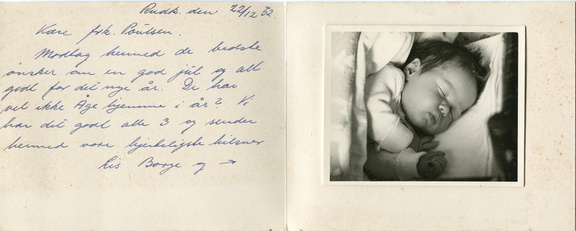 Rudk. den 22/12 52.
Kære frk. Poulsen.
Modtag hermed de bedste
ønsker om en god jul og alt
godt for det nye år. De har
vel ikke Åge hjemme i år? Vi
har det godt alle 3 og sender
hermed vore hjerteligste hilsner
Lis Børge og →